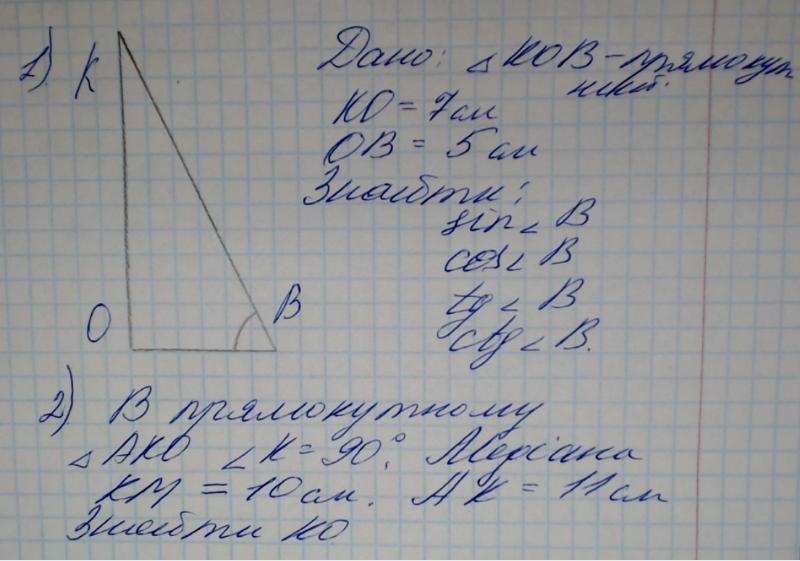 1) K Дано: △ KOB – прямокутний.
KO = 7 см
OB = 5 см
Знайти:
sin ∠ B
cos ∠ B
tg ∠ B
O B
ctg ∠ B.
2) В прямокутному
△ AKO ∠K = 90°, Медіана
KM = 10 см. AK = 11 см
Знайти KO